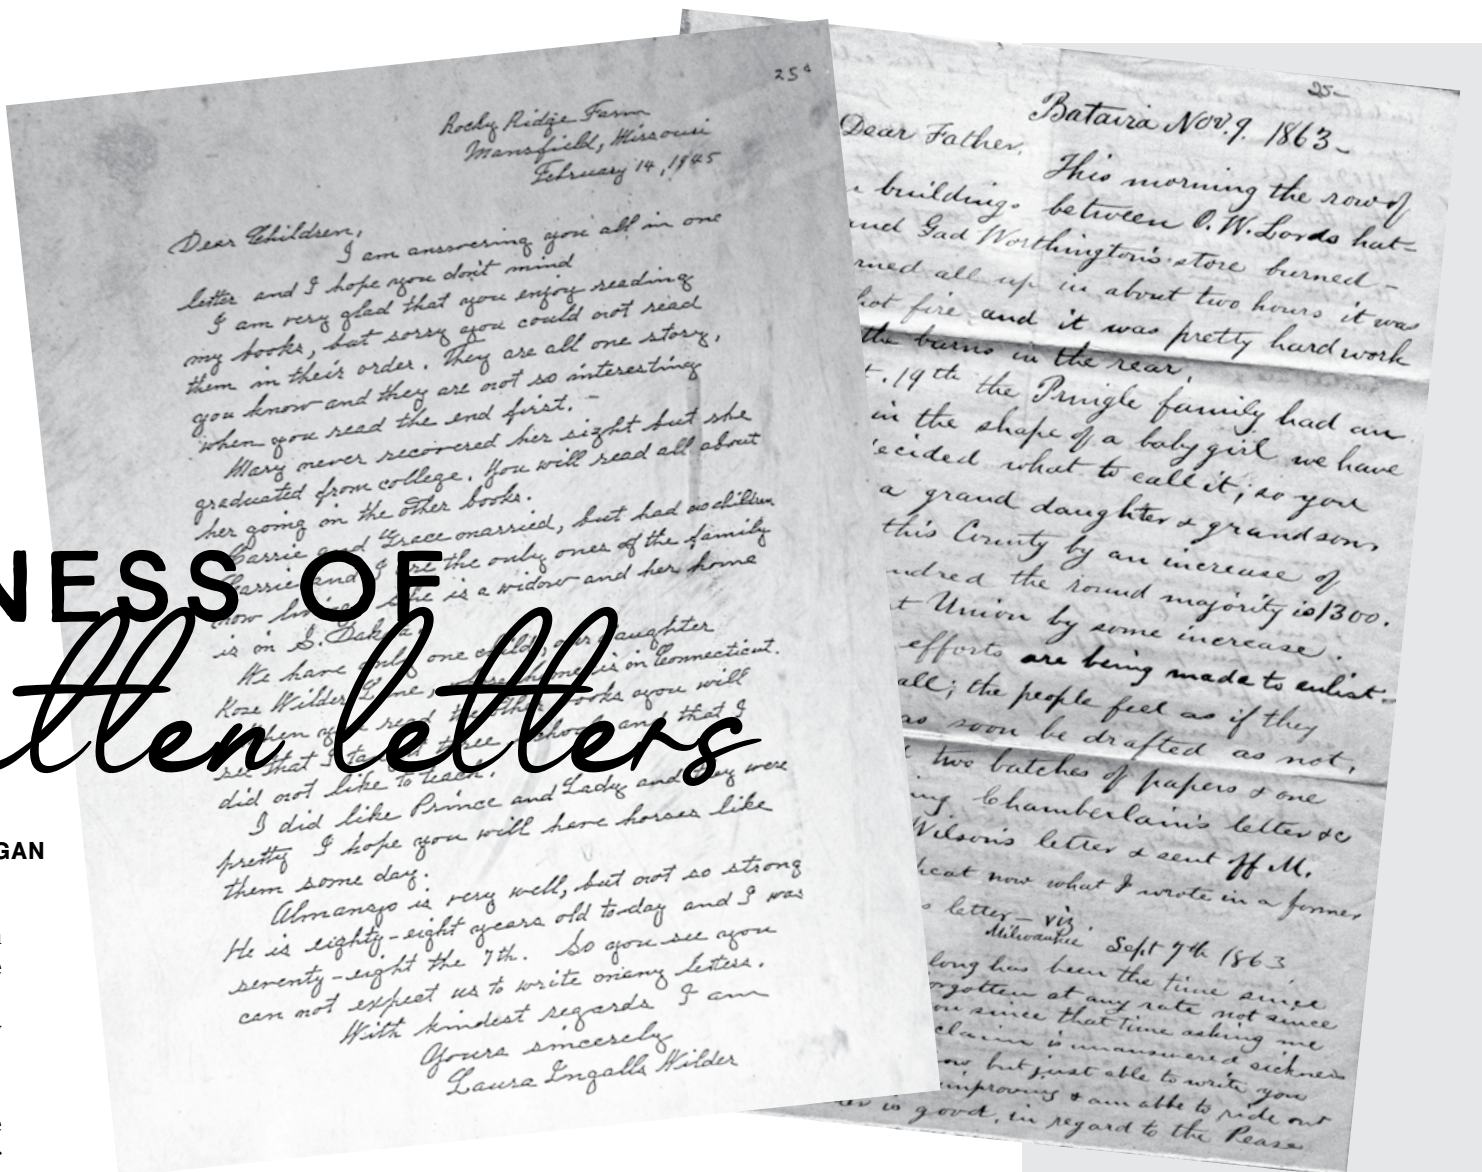 25¢
Rocky Ridge Farm
Mansfield, Missouri
February 14, 1945
Dear Children,
I am answering you all in one
letter and I hope you don't mind
I am very glad that you enjoy reading
my books, but sorry you could not read
them in their order. They are all one story,
you know and they are not so interesting
when you read the end first. -
Mary never recovered her sight but she
graduated from college. You will read all about
her going in the other books.
Carrie and Grace married, but had no children
Carrie and I are the only ones of the family
now living. She is a widow and her home
is in S. Dakota
We have only one child, our daughter
Rose Wilder Lane, her home is in Connecticut.
When you read the other books you will
see that I taught three schools and that I
did not like to teach.
I did like Prince and Lady and they were
pretty I hope you will have horses like
them some day.
Almanzo is very well, but not so strong
He is eighty-eight years old to-day and I was
seventy-eight the 7th. So you see you
can not expect us to write many letters.
With kindest regards I am
Yours sincerely
Laura Ingalls Wilder
NESS OF
tten letters
GAN
25-
Batavia Nov. 9. 1863-
Dear Father.
This morning the row of
buildings between O. W. Lords hat-
and Gad Worthington's store burned-
rned all up in about two hours it was
hot fire and it was pretty hard work
the barns in the rear.
t. 19th the Pringle family had an
in the shape of a baby girl we have
ecided what to call it; so you
a grand daughter & grandsons
this County by an increase of
undred the round majority is 1300.
t Union by some increase.
efforts are being made to enlist-
all; the people feel as if they
as soon be drafted as not,
two batches of papers & one
ing Chamberlain's letter &c
Wilson's letter & sent off M.
heat now what I wrote in a former
s letter - viz
Milwaukie Sept 9th 1863
long has been the time since
orgotten at any rate not since
ou since that time asking me
claim is unanswered sickness
ow but just able to write you
improving & am able to ride out
er is good, in regard to the Pease